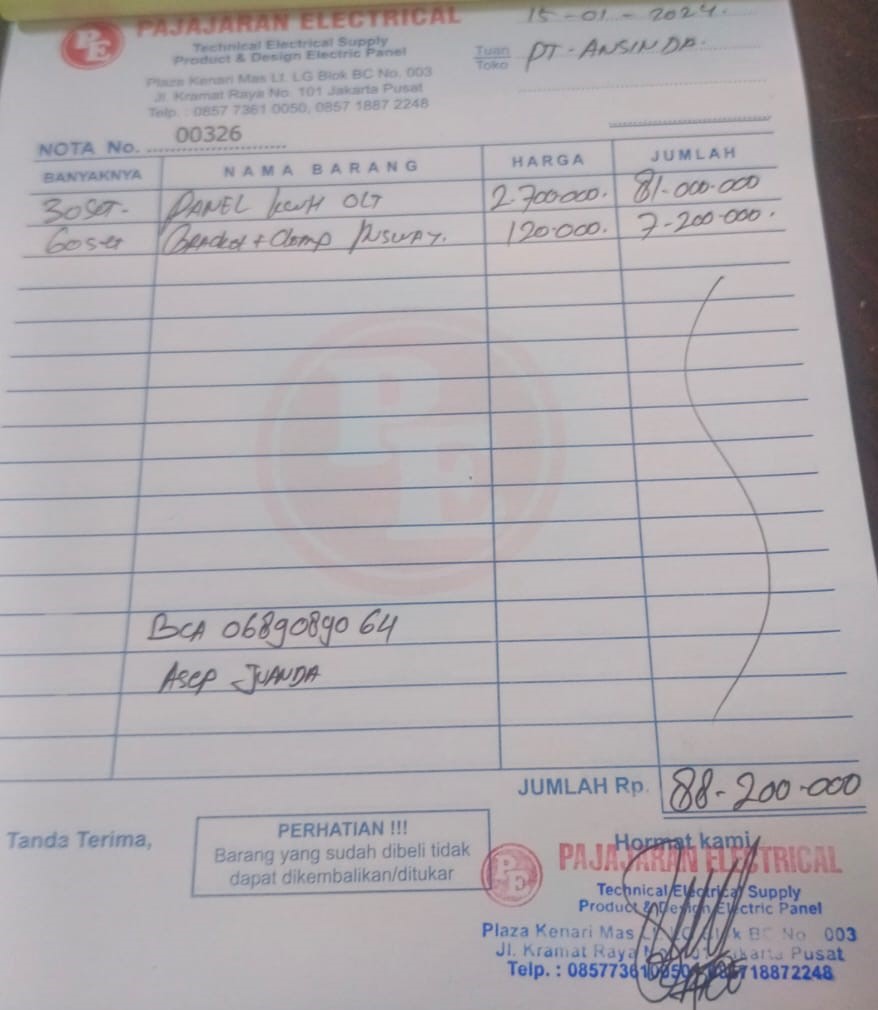 PE
PAJAJARAN ELECTRICAL
Technical Electrical Supply
Product & Design Electric Panel
Plaza Kenari Mas Lt. LG Blok BC No. 003
Jl. Kramat Raya No. 101 Jakarta Pusat
Telp. : 0857 7361 0050, 0857 1887 2248
15-01-2024.
Tuan
Toko
PT-ANSINDA.
NOTA No. 00326
BANYAKNYA NAMA BARANG HARGA JUMLAH
30 SET. PANEL kWH OLT 2.700.000. 81-000-000
60 set Bracket + Clamp 120.000. 7-200-000.
PE
BCA 0689089064
ASEP JUANDA
JUMLAH Rp. 88-200-000
Tanda Terima,
PERHATIAN !!!
Barang yang sudah dibeli tidak
dapat dikembalikan/ditukar
Hormat kami,
PE
PAJAJARAN ELECTRICAL
Technical Electrical Supply
Product & Design Electric Panel
Plaza Kenari Mas Blok BC No 003
Jl. Kramat Raya Jakarta Pusat
Telp. : 085773610050 085718872248